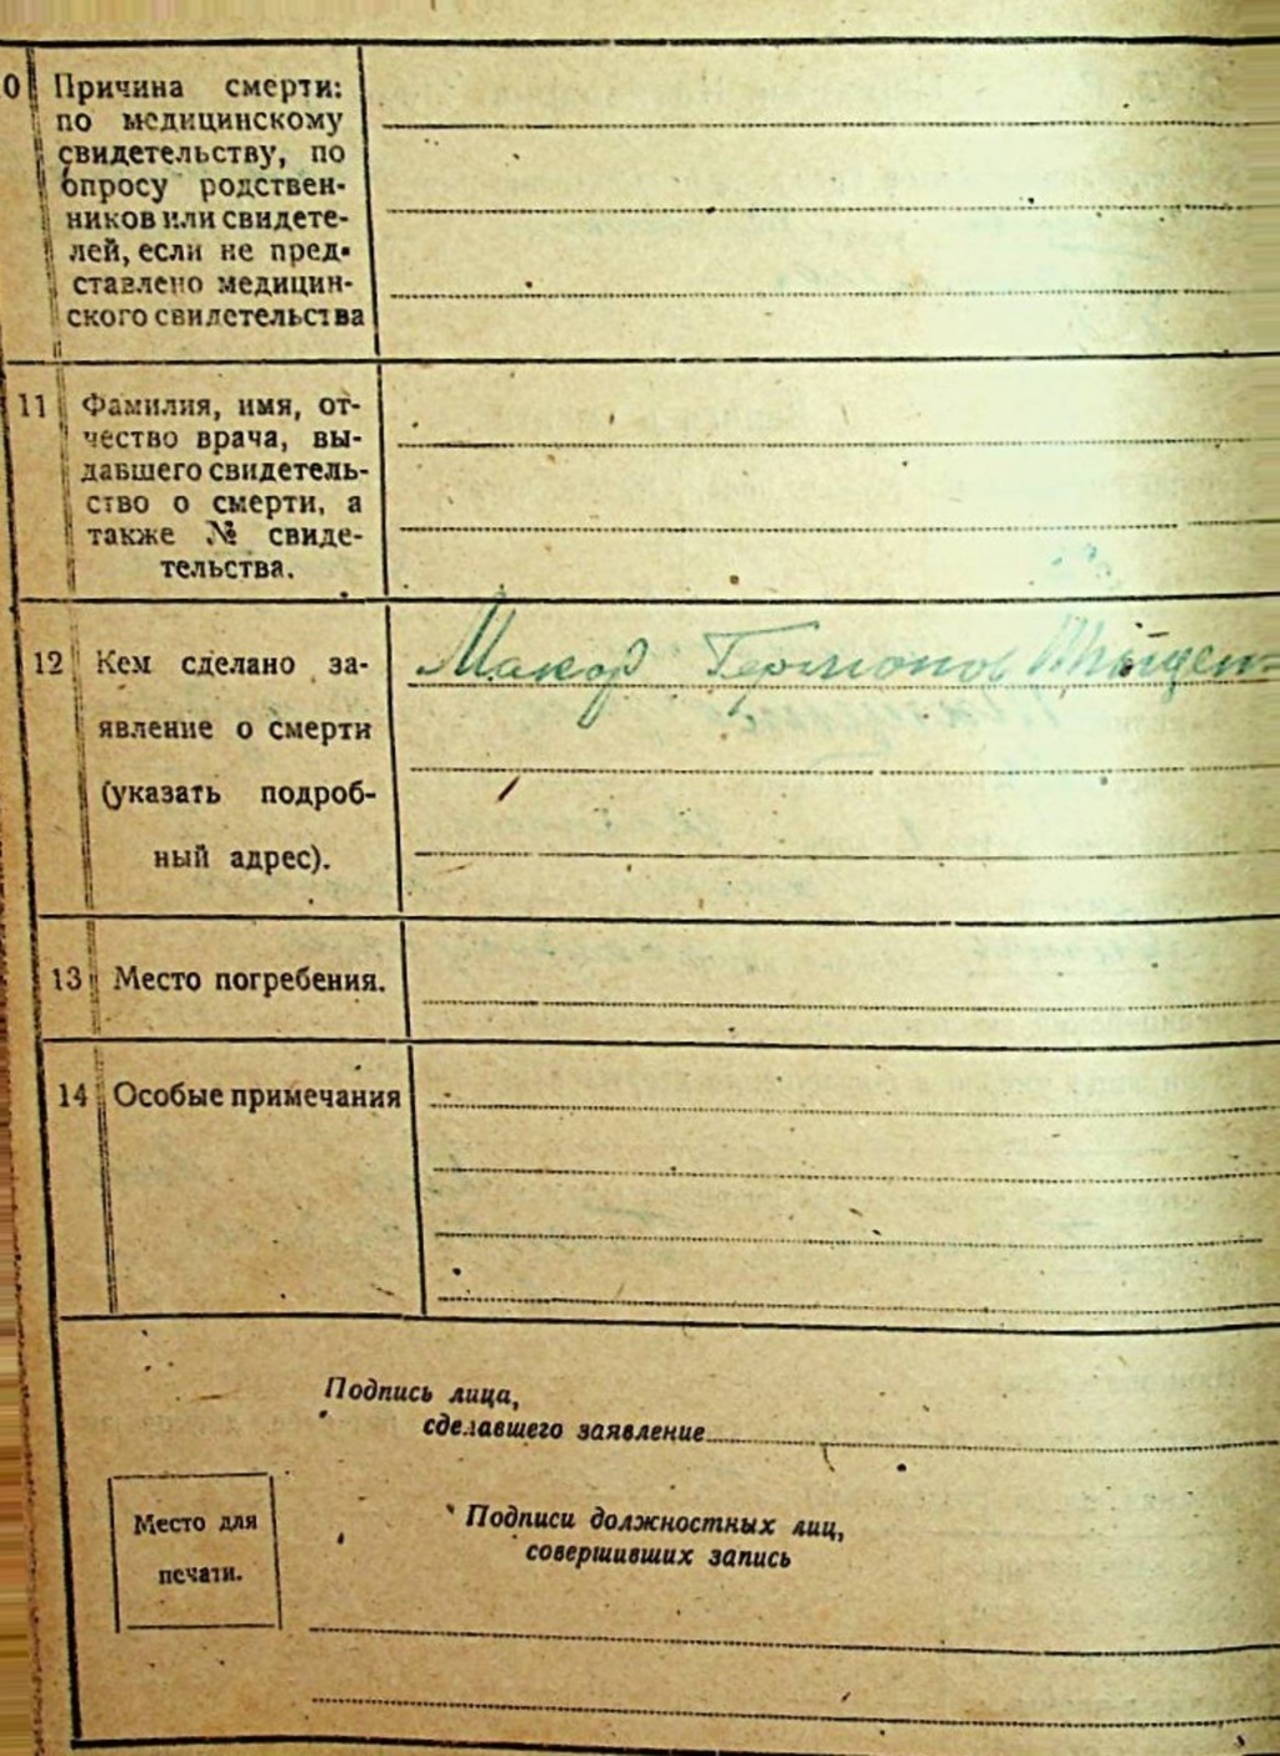 0 Причина смерти:
по медицинскому
свидетельству, по
опросу родствен-
ников или свидете-
лей, если не пред-
ставлено медицин-
ского свидетельства
11 Фамилия, имя, от-
чество врача, вы-
давшего свидетель-
ство о смерти, а
также № свиде-
тельства.
12 Кем сделано за- Макар
явление о смерти
(указать подроб-
ный адрес).
13 Место погребения.
14 Особые примечания
Подпись лица,
сделавшего заявление
Место для
печати.
Подписи должностных лиц,
совершивших запись